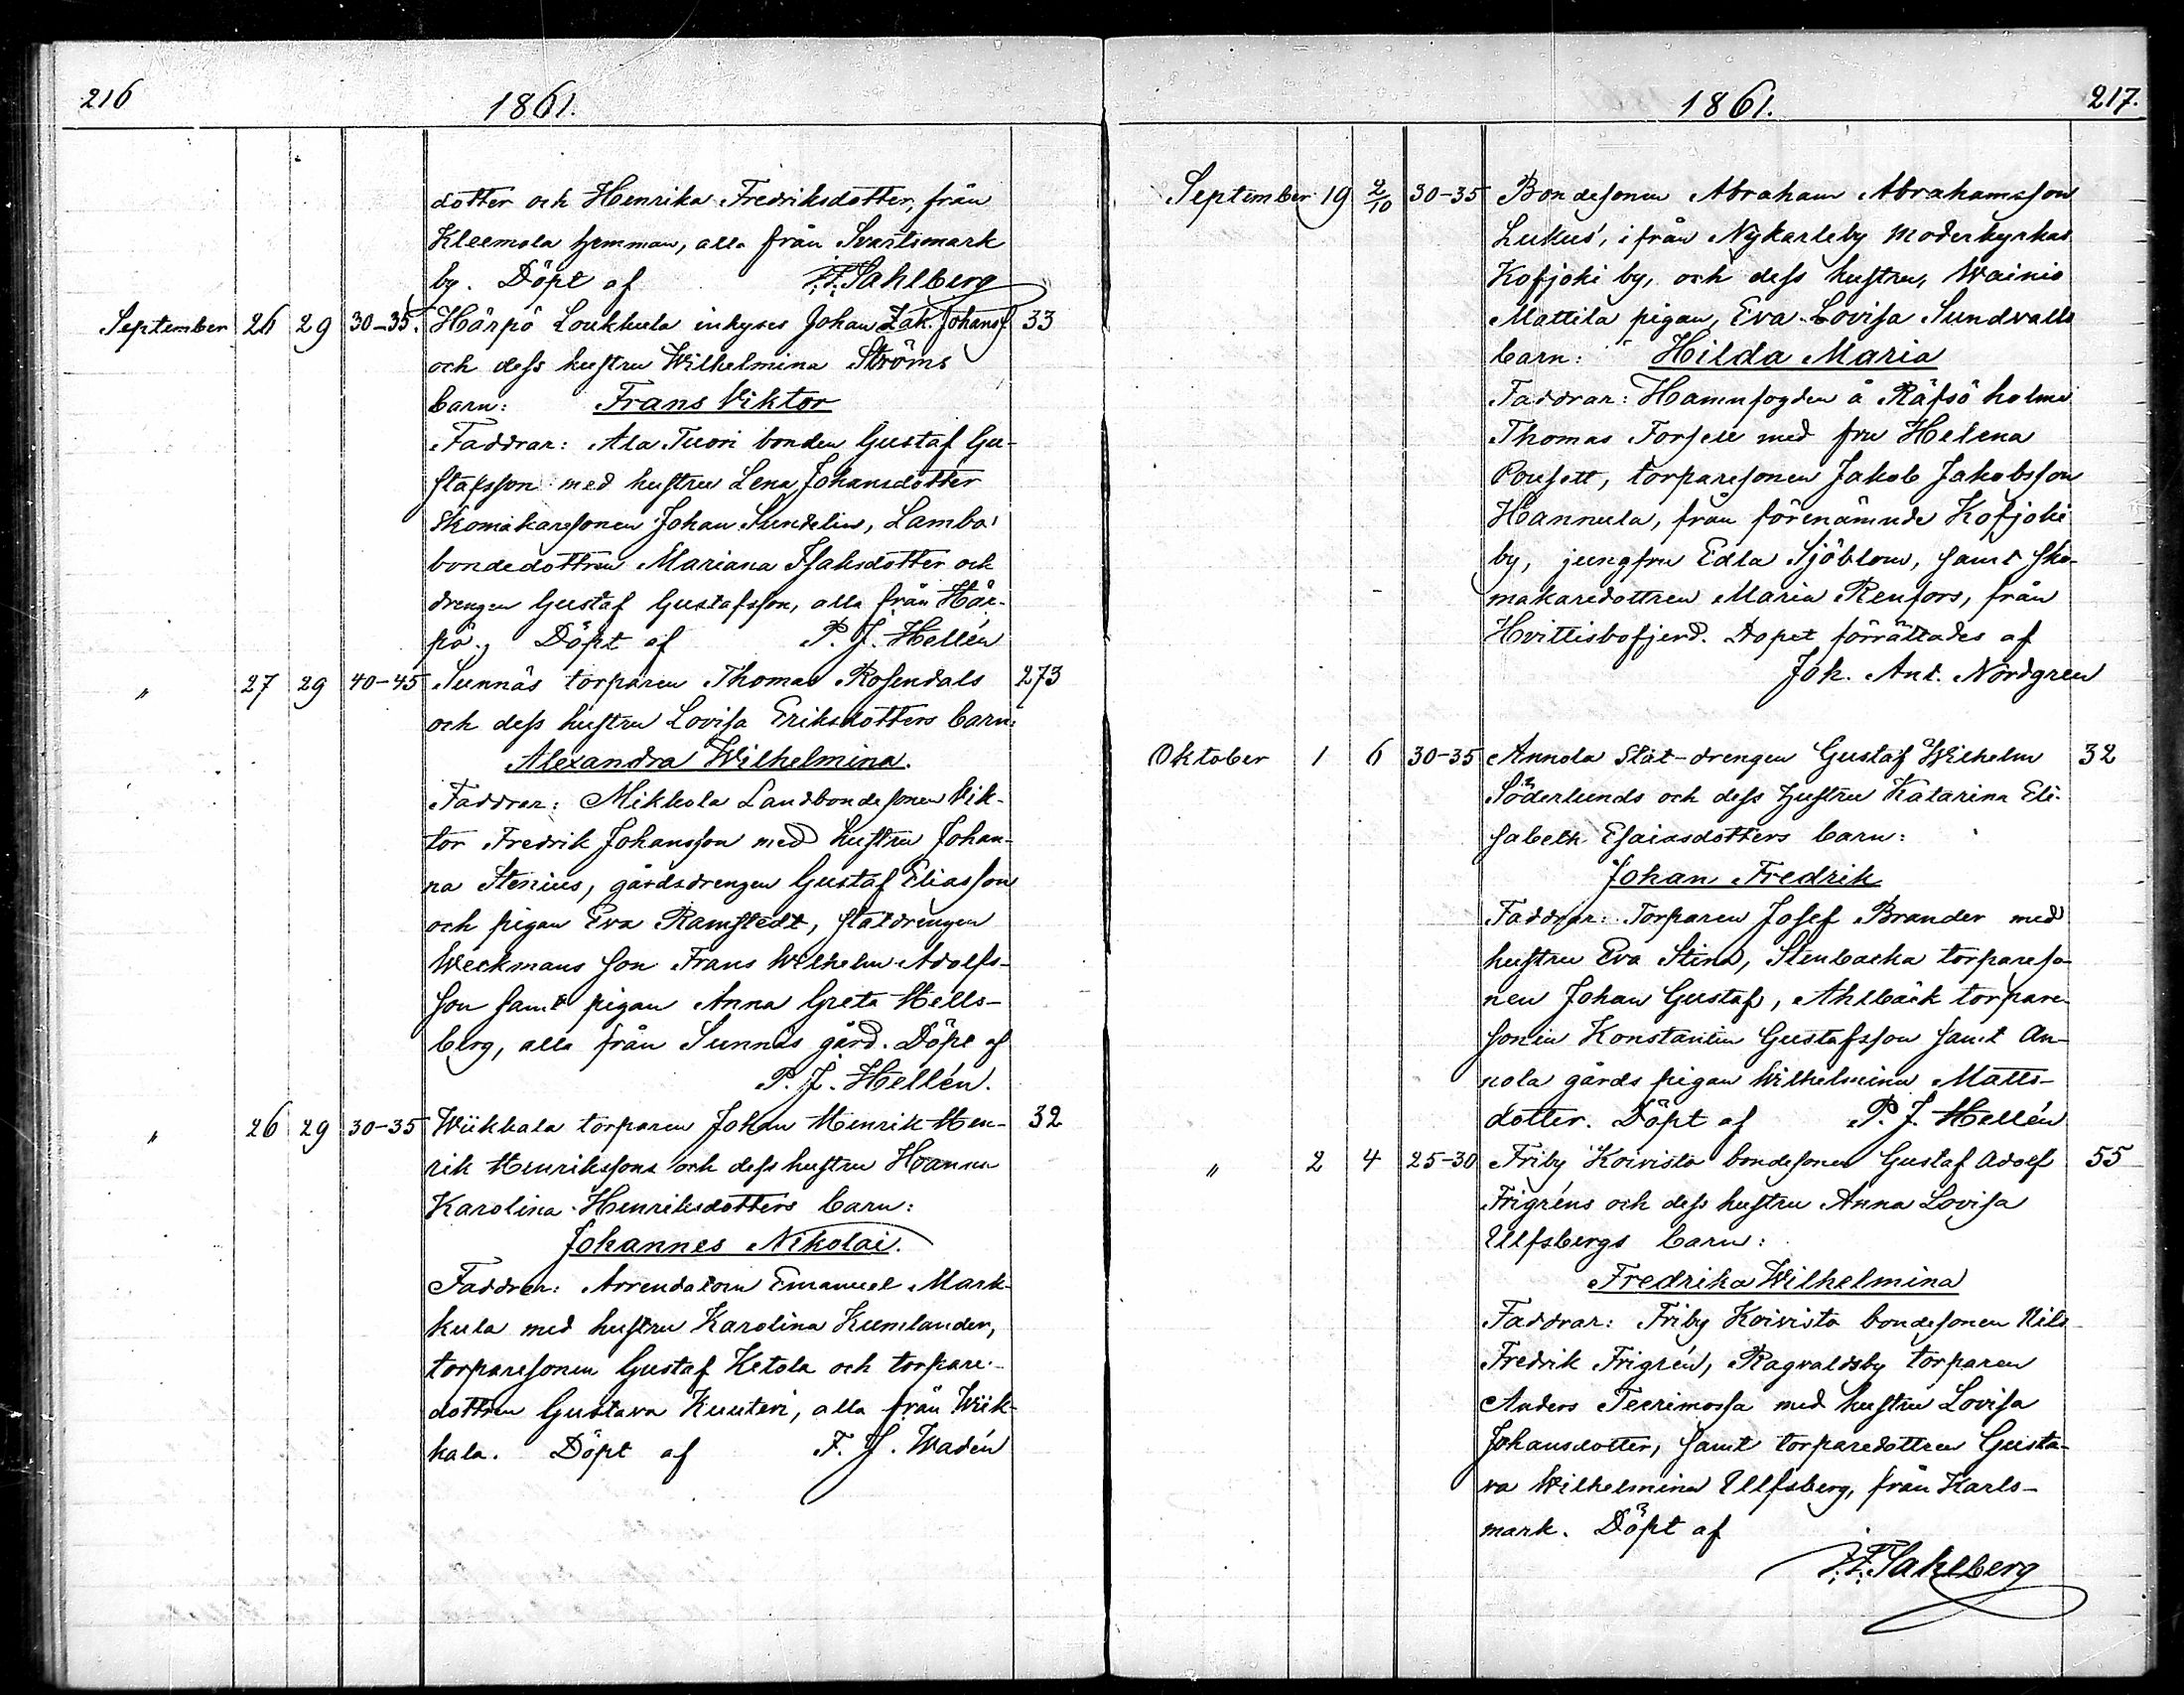 216
1861.
dotter och Henrika Fredriksdotter, från
Kleemola hemman, alla från Svartsmark
by. Döpt af F. F. Sahlberg
September 26 29 30-35. Hårpö Loukkula inhyses Johan Zak. Johanss. 33
och dess hustru Wilhelmina Ströms
barn: Frans Viktor
Faddrar: Ala Tuori bonden Gustaf Gu-
stafsson med hustru Lena Johansdotter
Skomakaresonen Johan Sundelin, Lamba
bondedottren Mariana Isaksdotter och
drengen Gustaf Gustafsson, alla från Hår-
pö. Döpt af P. J. Hellén
" 27 29 40-45 Sunnäs torparen Thomas Rosendals 273
och dess hustru Lovisa Eriksdotters barn:
Alexandra Wilhelmina.
Faddrar: Mikkola Landbondesonen Vik-
tor Fredrik Johansson med hustru Johan-
na Stenius, gårdsdrengen Gustaf Eliasson
och pigan Eva Ramstedt, statdrengen
Weckmans son Frans Wilhelm Adolfs-
son samt pigan Anna Greta Hells-
berg, alla från Sunnäs gård. Döpt af
P. J. Hellén.
" 26 29 30-35 Wiikkala torparen Johan Henrik Hen- 32
rik Henrikssons och dess hustru Hanna
Karolina Henriksdotters barn:
Johannes Nikolai.
Faddrar: Arrendatorn Emanuel Mark-
kula med hustru Karolina Kumlander,
torparesonen Gustaf Ketola och torpare-
dottren Gustava Kuuteri, alla från Wiik-
kala. Döpt af F. J. Wadén
1861.
217.
September 19 2/10 30-35 Bondesonen Abraham Abrahamsson
Lukus', ifrån Nykarleby moderkyrkas
Kofjoki by, och dess hustru, Wainio
Mattila pigan, Eva Lovisa Sundvalls
barn: Hilda Maria
Faddrar: Hamnfogden å Räfsö holme
Thomas Forsell med fru Helena
torparesonen Jakob Jakobsson
Hannula, från förenämnde Kofjoki
by, jungfru Edla Sjöblom, samt sko-
makaredottren Maria Renfors, från
Hvittisbofjerd. Dopet förrättades af
Joh. Ant. Nordgren
Oktober 1 6 30-35 Annola Stat-drengen Gustaf Wilhelm 32
Söderlunds och dess hustru Katarina Eli-
sabeth Esaiasdotters barn:
Johan Fredrik
Faddrar: Torparen Josef Brander med
hustru Eva Stina, Stenbacka torpareso-
nen Johan Gustaf, Ahlbäck torpare-
sonen Konstantin Gustafsson samt An-
nola gårds pigan Wilhelmina Matts-
dotter. Döpt af P. J. Hellén
" 2 4 25-30 Friby Koivisto bondesonen Gustaf Adolf 55
Frigréns och dess hustru Anna Lovisa
Ulfsbergs barn:
Fredrika Wilhelmina
Faddrar: Friby Koivisto bondesonen Nils
Fredrik Frigrén, Ragvaldsby torparen
Anders Teerimossa med hustru Lovisa
Johansdotter, samt torparedottren Gusta-
va Wilhelmina Ulfsberg, från Karls-
mark. Döpt af
F. F. Sahlberg